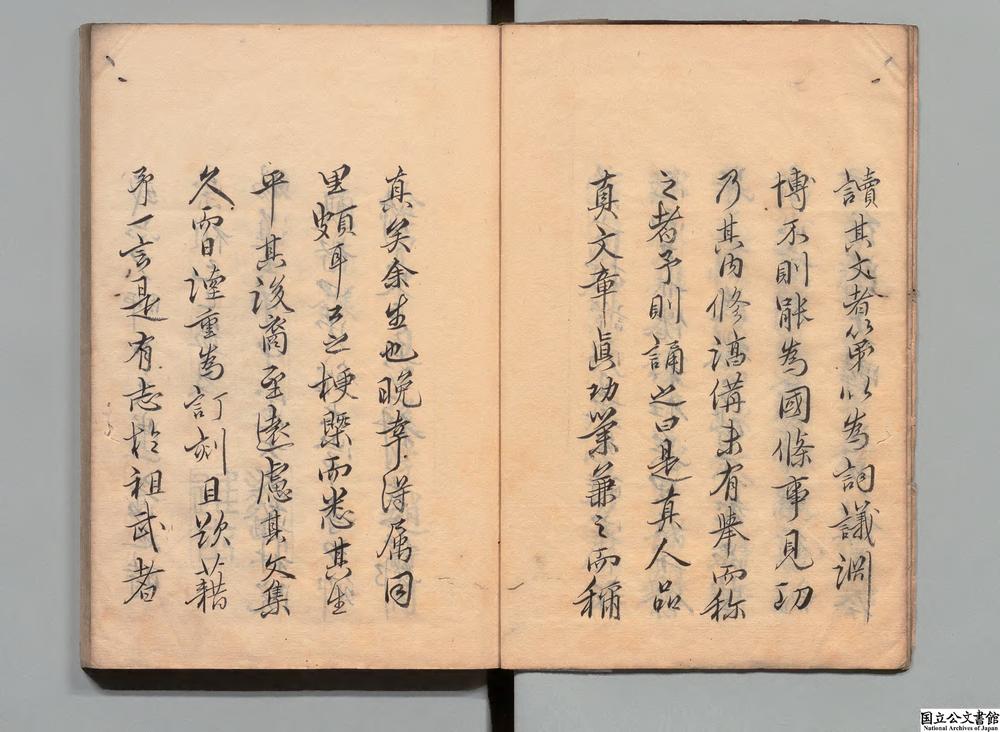 讀其文者第以為詞議淵
博不則能為國條事見功
乃其內脩謞備未有舉而称
之者予則誦之曰是真人品
真文章眞功業兼之而稱
真矣余生也晚幸得属同
里頗耳公之梗槩而悉其生
平其後裔至遠慮其文集
久而日湮重為訂刻且欲藉
予一言是有志於祖武者
国立公文書館
National Archives of Japan